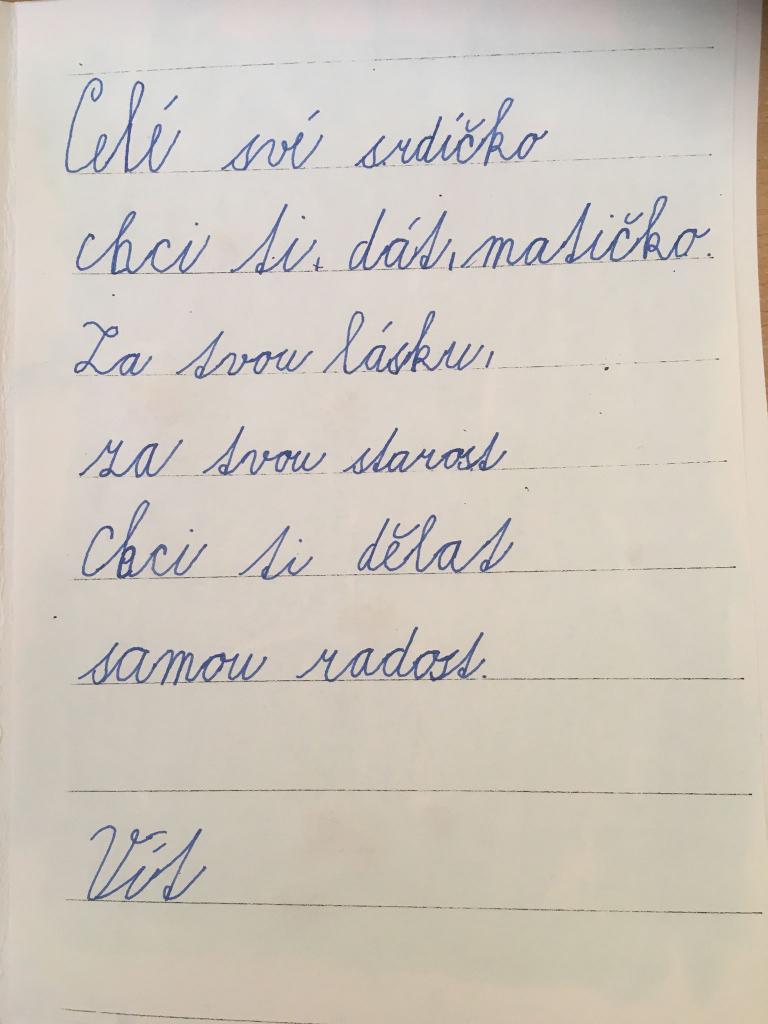 Celé své srdíčko
chci ti, dát, matičko.
Za tvou lásku,
za tvou starost
Chci ti dělat
samou radost.
Vít